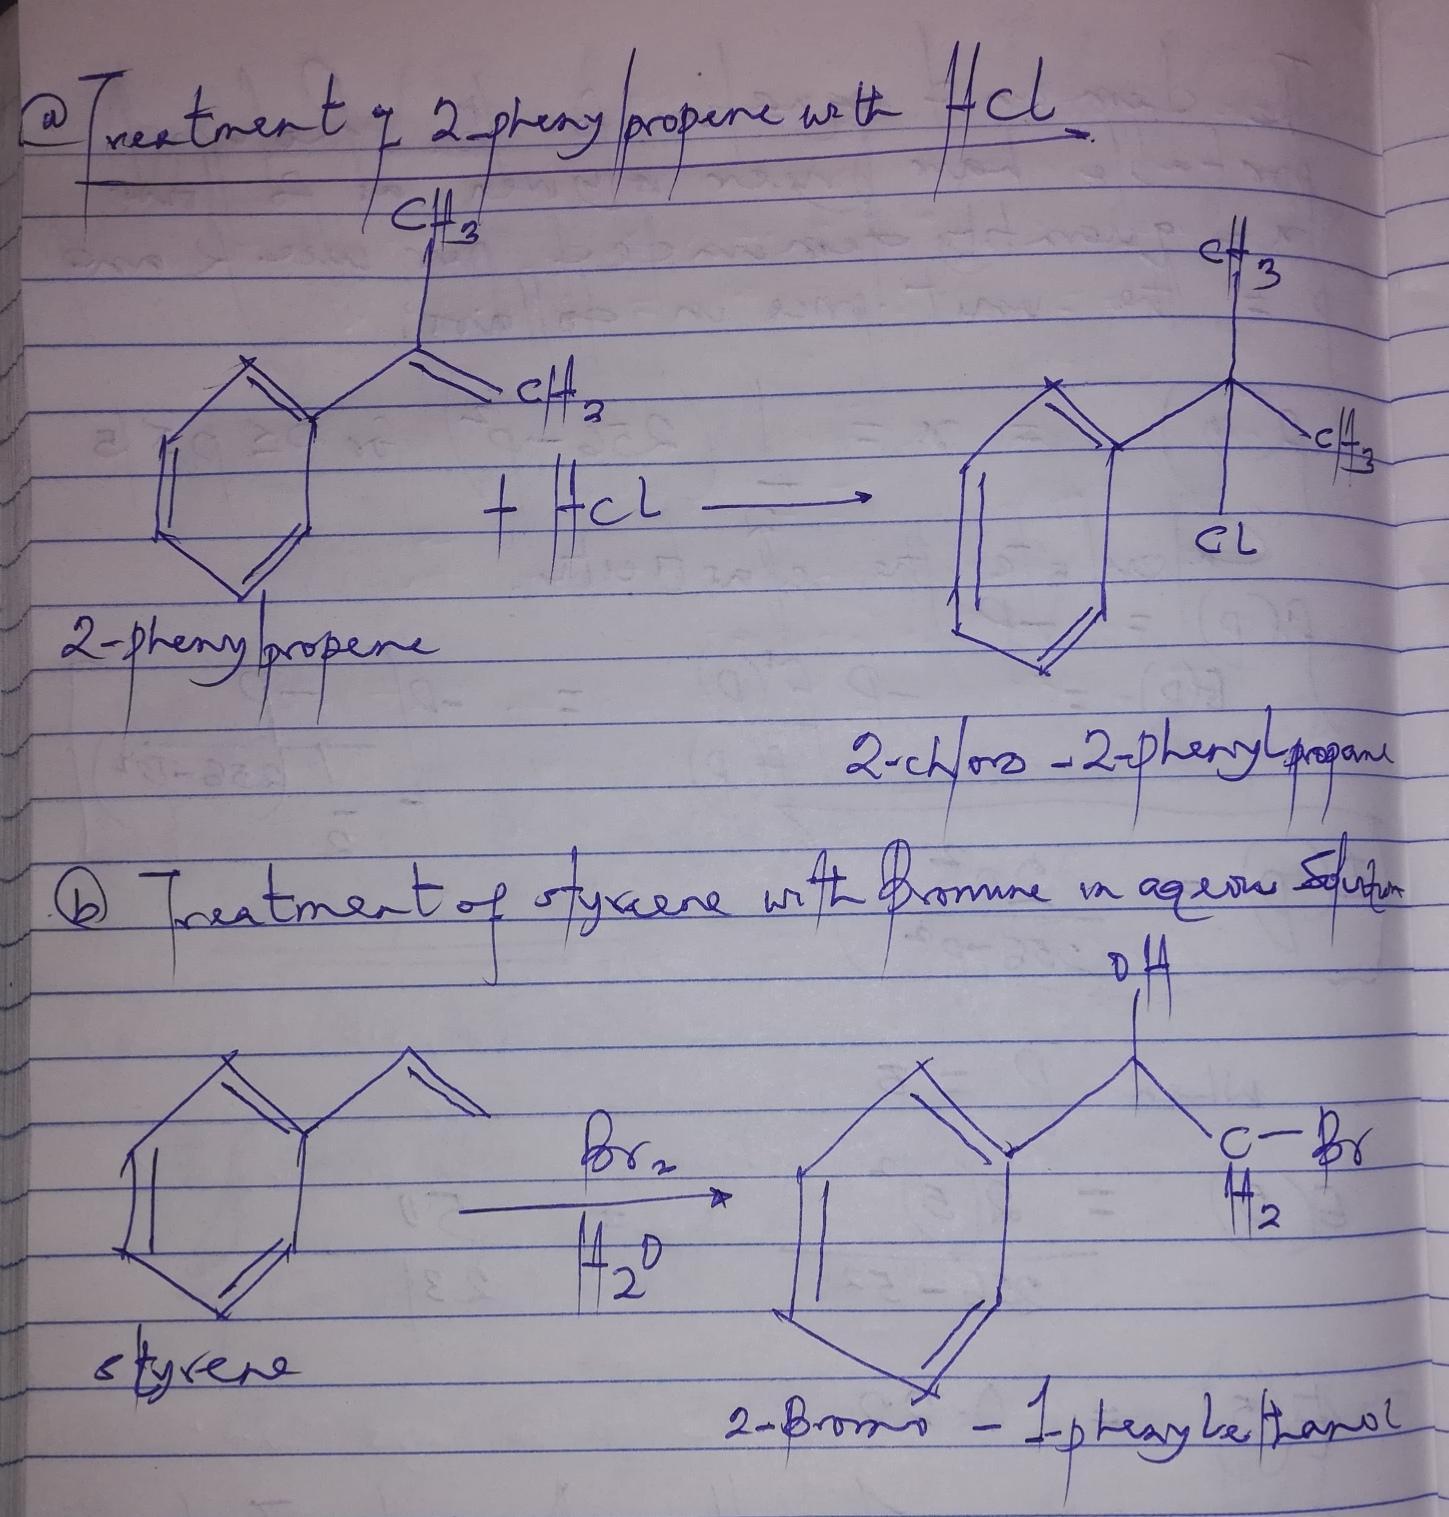 (a) Treatment of 2-phenylpropene with HCl
CH3
CH3
CH2
CH3
+ HCl
Cl
2-phenylpropene
2-chloro-2-phenylpropane
(b) Treatment of styrene with Bromine in aqeous Solution
OH
Br2
C-Br
H2
H2O
styrene
2-Bromo-1-phenylethanol